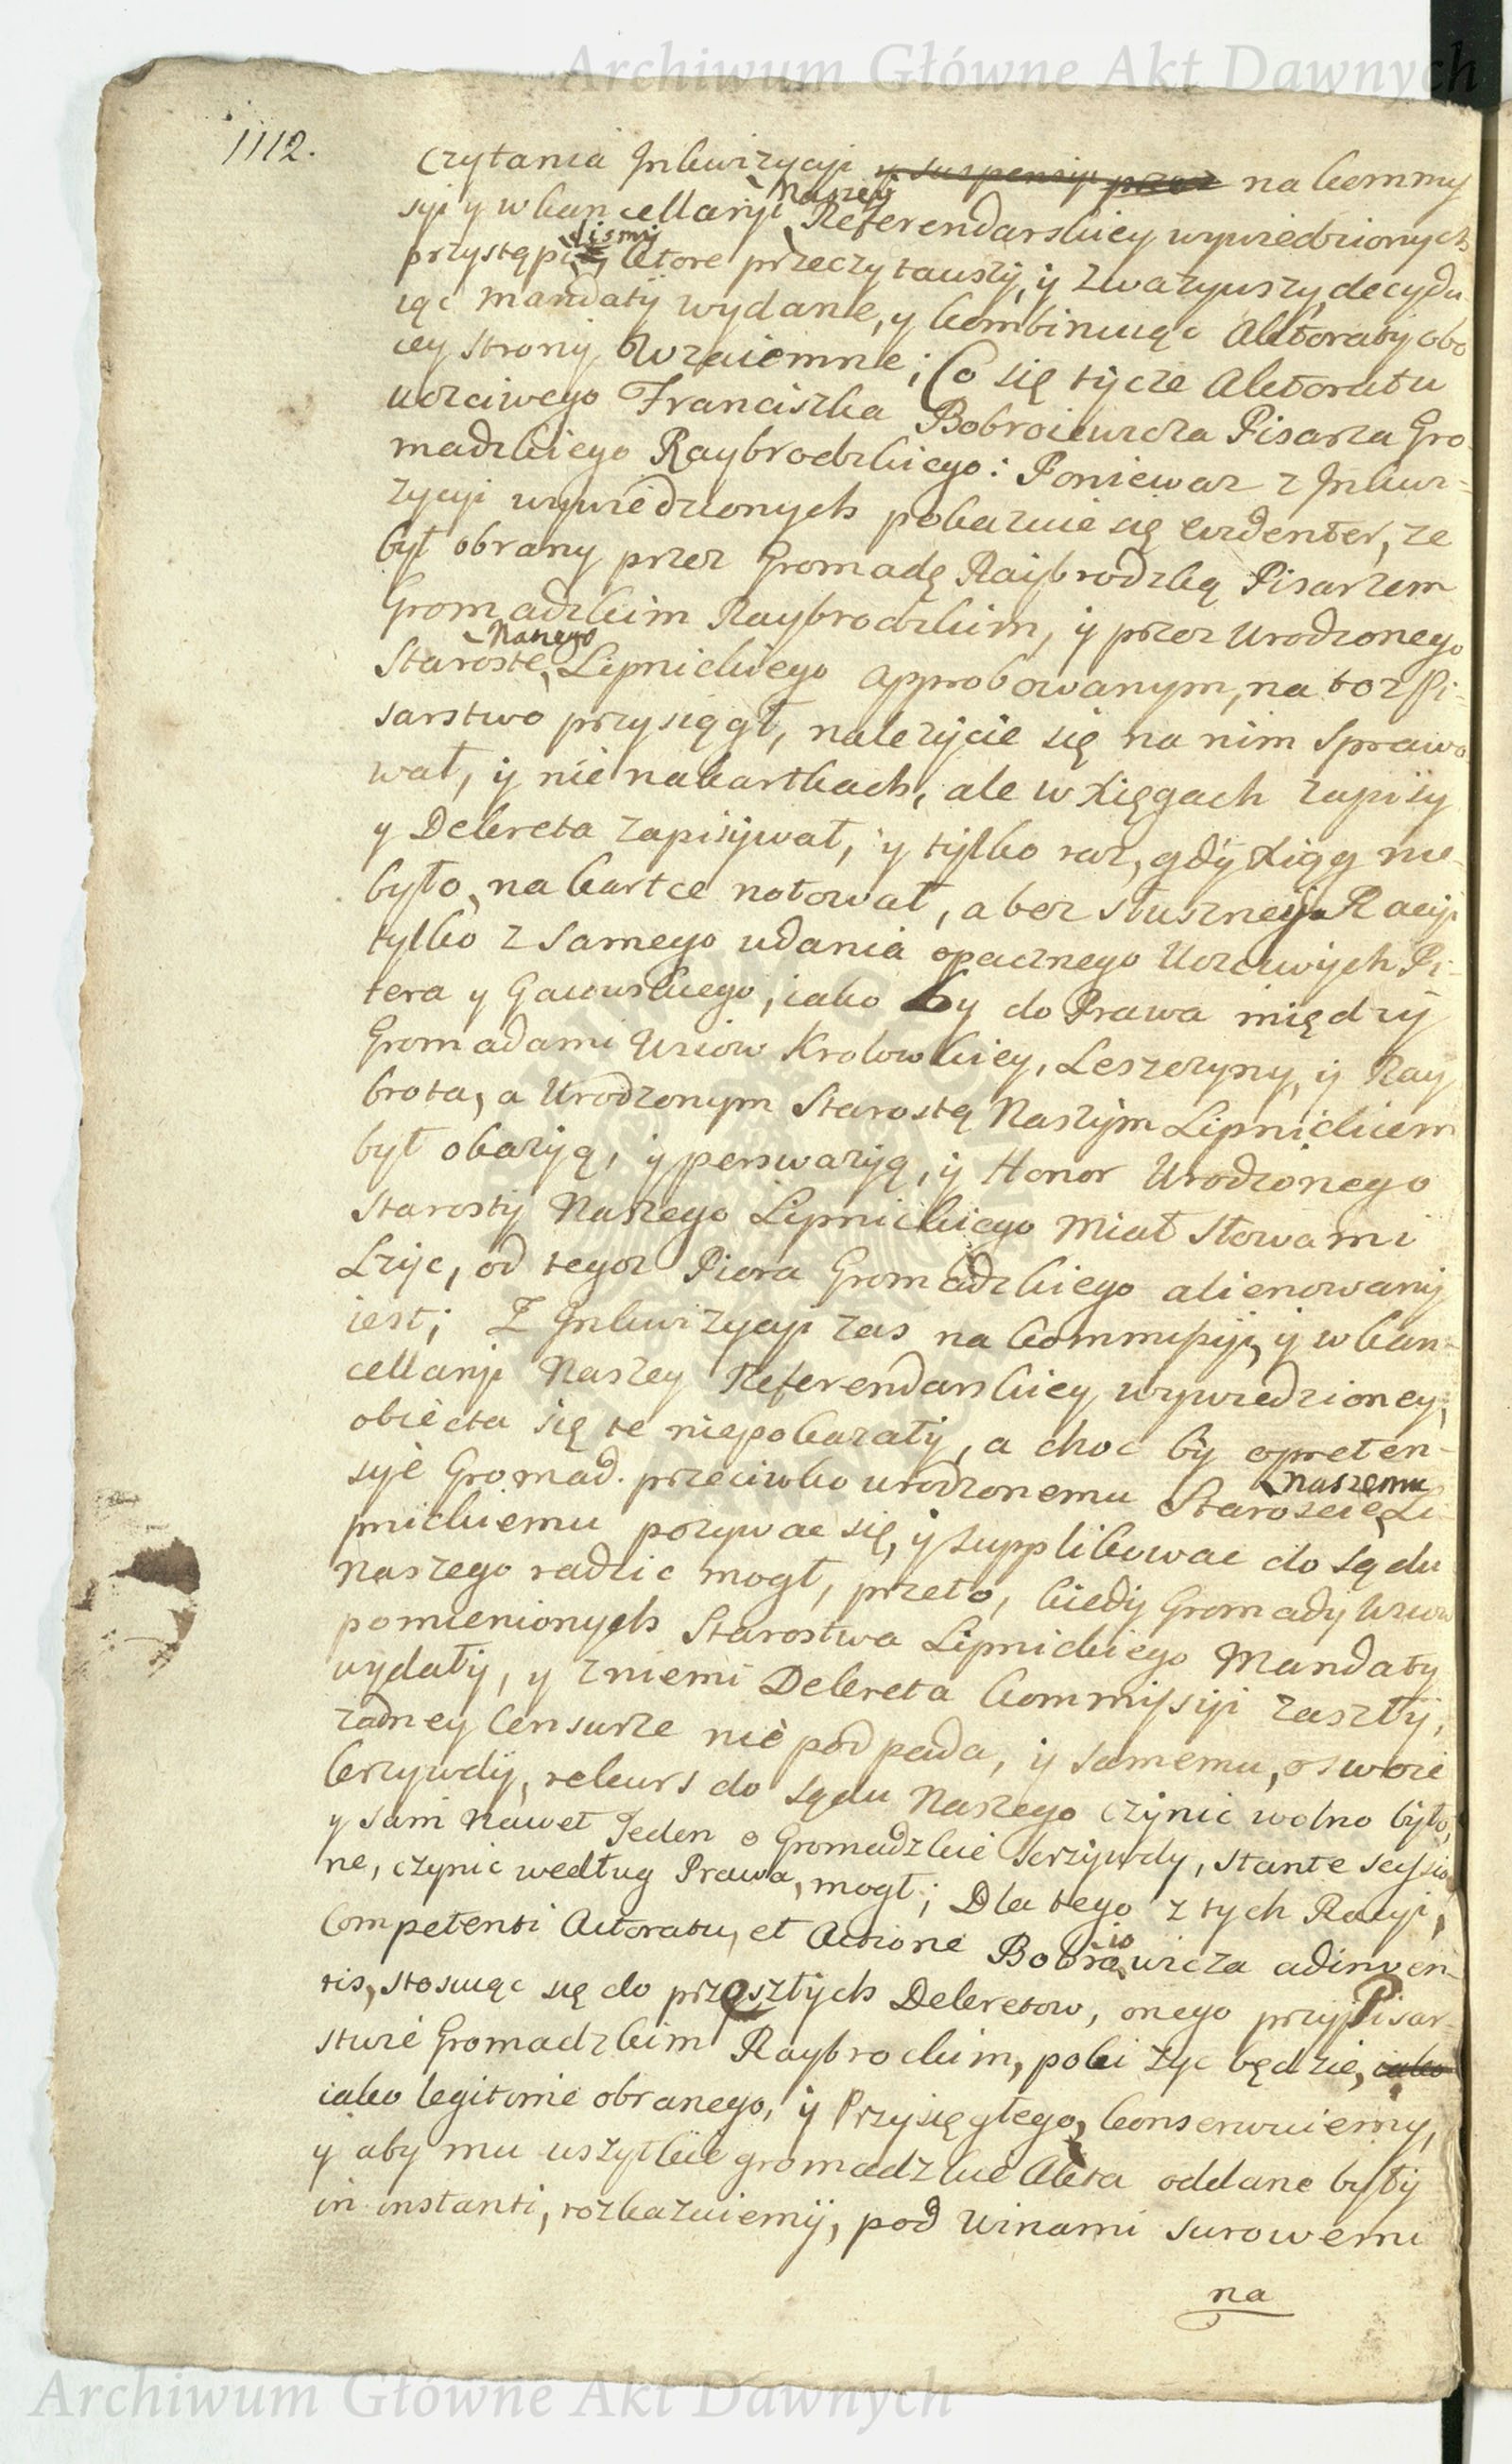 Archiwum Główne Akt Dawnych
1112.
czytania Inkwizycyi y suspensyi przez na kommy
syi y w kancellaryi Naszey Referendarskiey wywiedzionych
przystąpilismy, ktore przeczytawszy, y zwazywszy, decydu
iąc mandaty wydane, y kombinuiąc Aktoraty obo
iey strony wzaiemne; Co się tycze Aktoratu
uczciwego Franciszka Bobroiewicza Pisarza Gro-
madzkiego Raybrodzkiego: Poniewaz z Inkwi-
zycyi wywiedzionych pokazuie się evidenter, ze
był obrany przez Gromadę Raybrodzką Pisarzem
Gromadzkim Raybrodzkim, y przez Urodzonego
Starostę Naszego Lipnickiego approbowanym, na toz Pi-
sarstwo przysiągł, nalezycie się na nim sprawo
wał, y nie na kartkach, ale w Xięgach zapisy
y Dekreta zapisywał, y tylko raz, gdy Xiąg nie
było, na kartce notował, a bez słuszney Racyi
tylko z samego udania opacznego Uczciwych Pi-
tera y Gawuskiego, iako by do Prawa między
Gromadami Wsiow Krolowkiey, Leszczyny, y Ray
brota, a Urodzonym Starostą Naszym Lipnickiem
był okazyą, y perswazyą, y Honor Urodzonego
Starosty Naszego Lipnickiego miał słowami
Lzyc, od tegoz Piora Gromadzkiego alienowany
iest; Z Inkwizycyi zas na kommissyi, y w kan-
cellaryi Naszey Referendarskiey wywiedzioney,
obiecta się te niepokazały, a choc by o preten-
syie Gromad. przeciwko urodzonemu Staroscie Naszemu Li
pnickiemu pozywac się, y supplikowac do sądu
Naszego radzic mogł, przeto, kiedy Gromady wsiow
pomienionych Starostwa Lipnickiego Mandaty
wydały, y z niemi Dekreta kommissyi zaszły,
zadney Censurze nie podpada, y samemu, o swoie
krzywdy, rekurs do sądu Naszego czynic wolno było,
y sam nawet Jeden o Gromadzkie krzywdy, stante sessio
ne, czynic według Prawa, mogł; Dla tego z tych Racyi,
Competenti Actoratu, et Actione Bobroiewicza adinven-
tis, stosuiąc się do przeszłych Dekretow, onego przy Pisar-
stwie Gromadzkim Raybrockim, poki zyc będzie, iako
iako legitime obranego, y Przysięgłego, konserwuiemy,
y aby mu wszytkie gromadzkie Akta oddane były
in instanti, rozkazuiemy, pod winami surowemi
na
Archiwum Główne Akt Dawnych